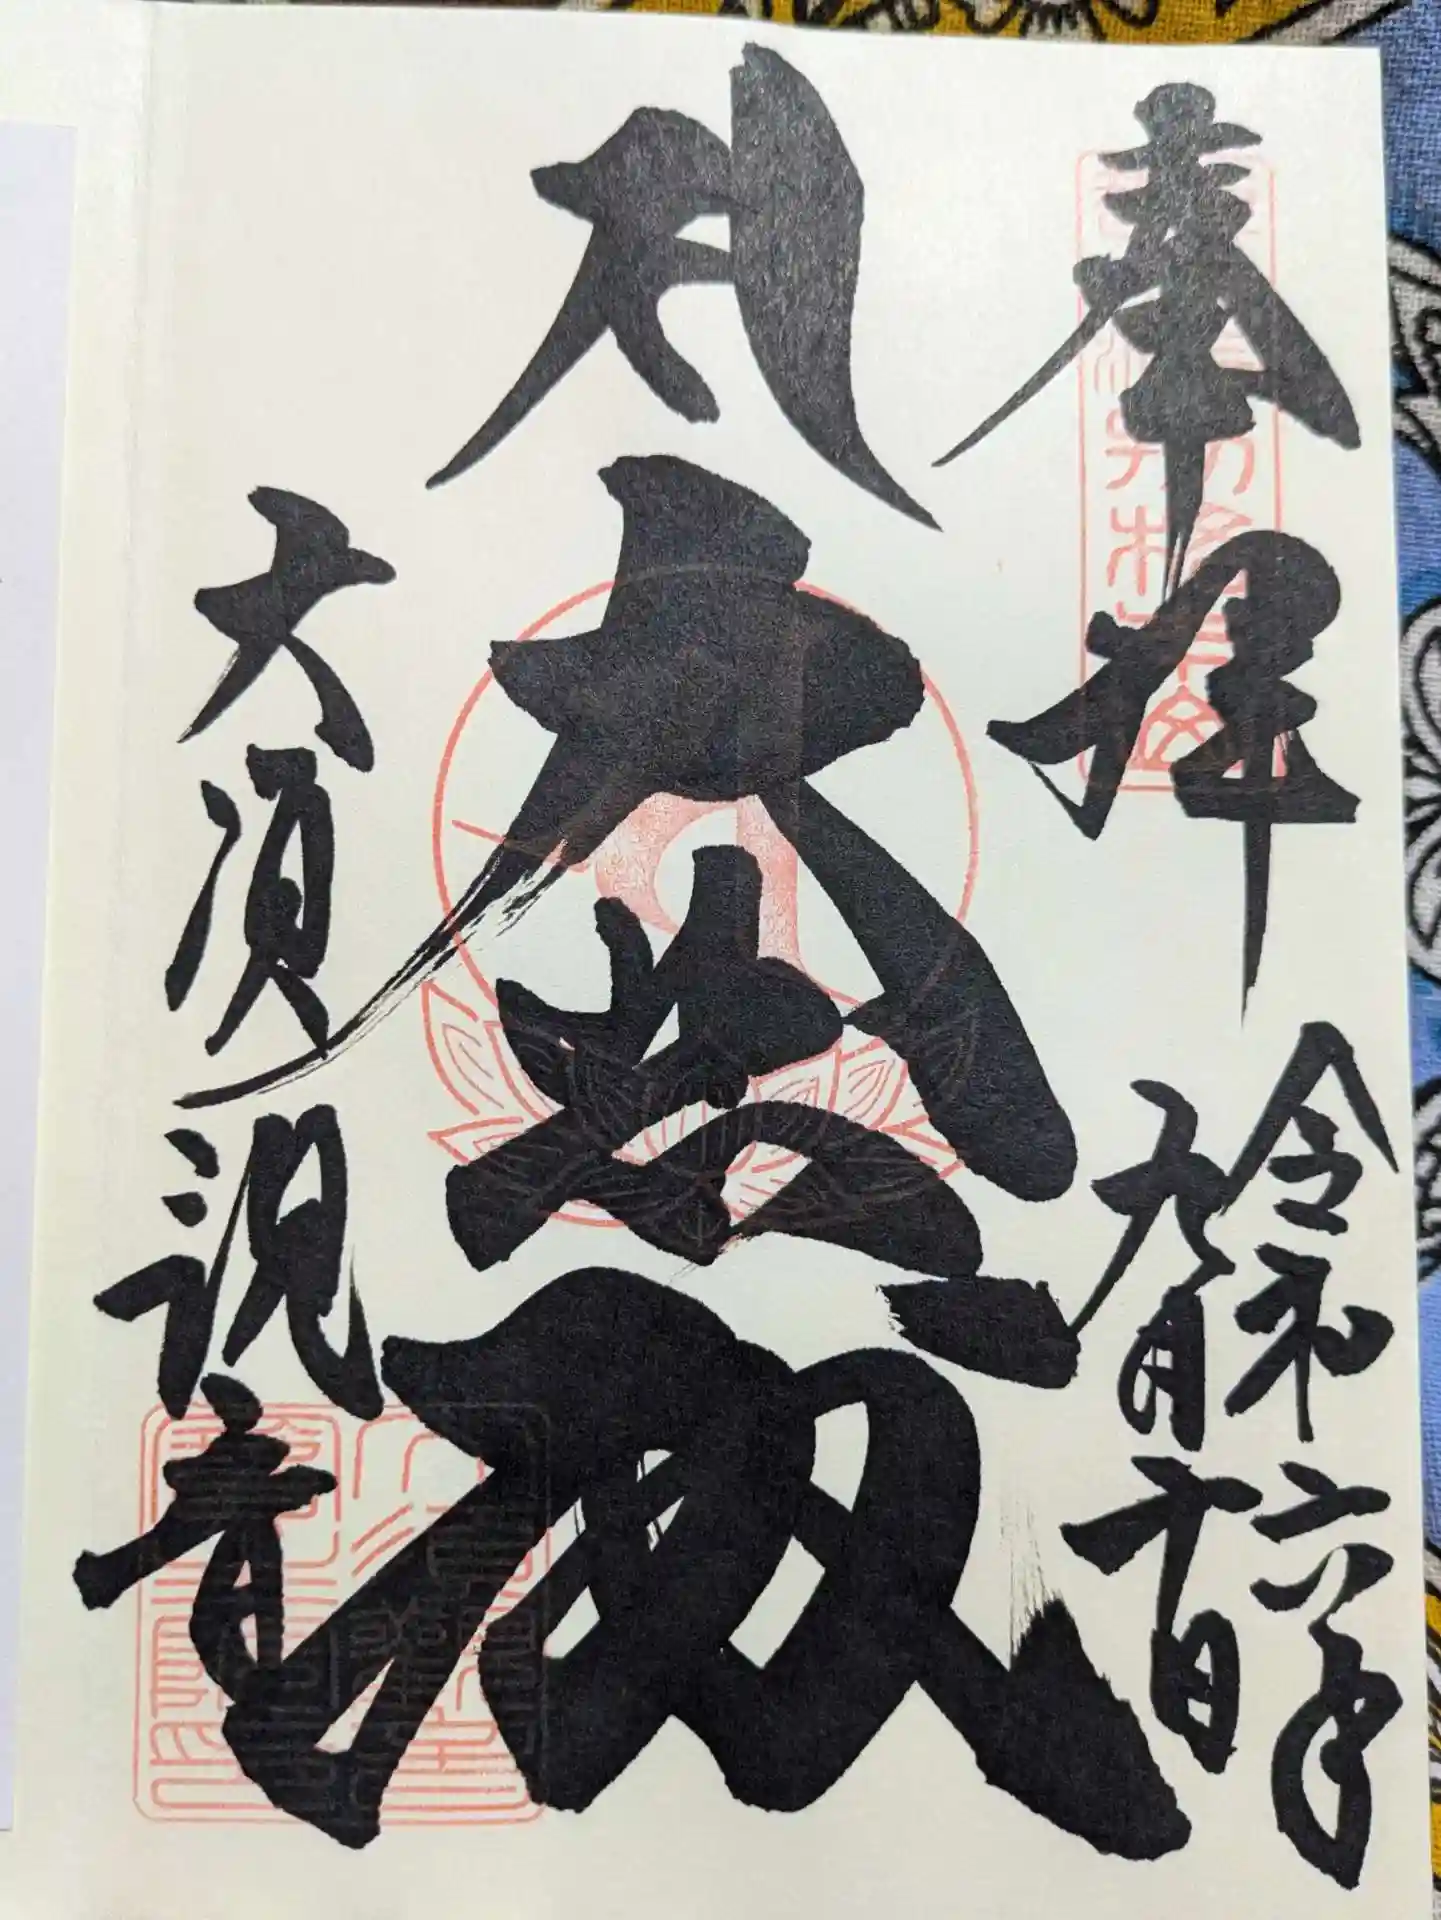 奉拝
令和六年
九月十日
大悲殿
大須観音